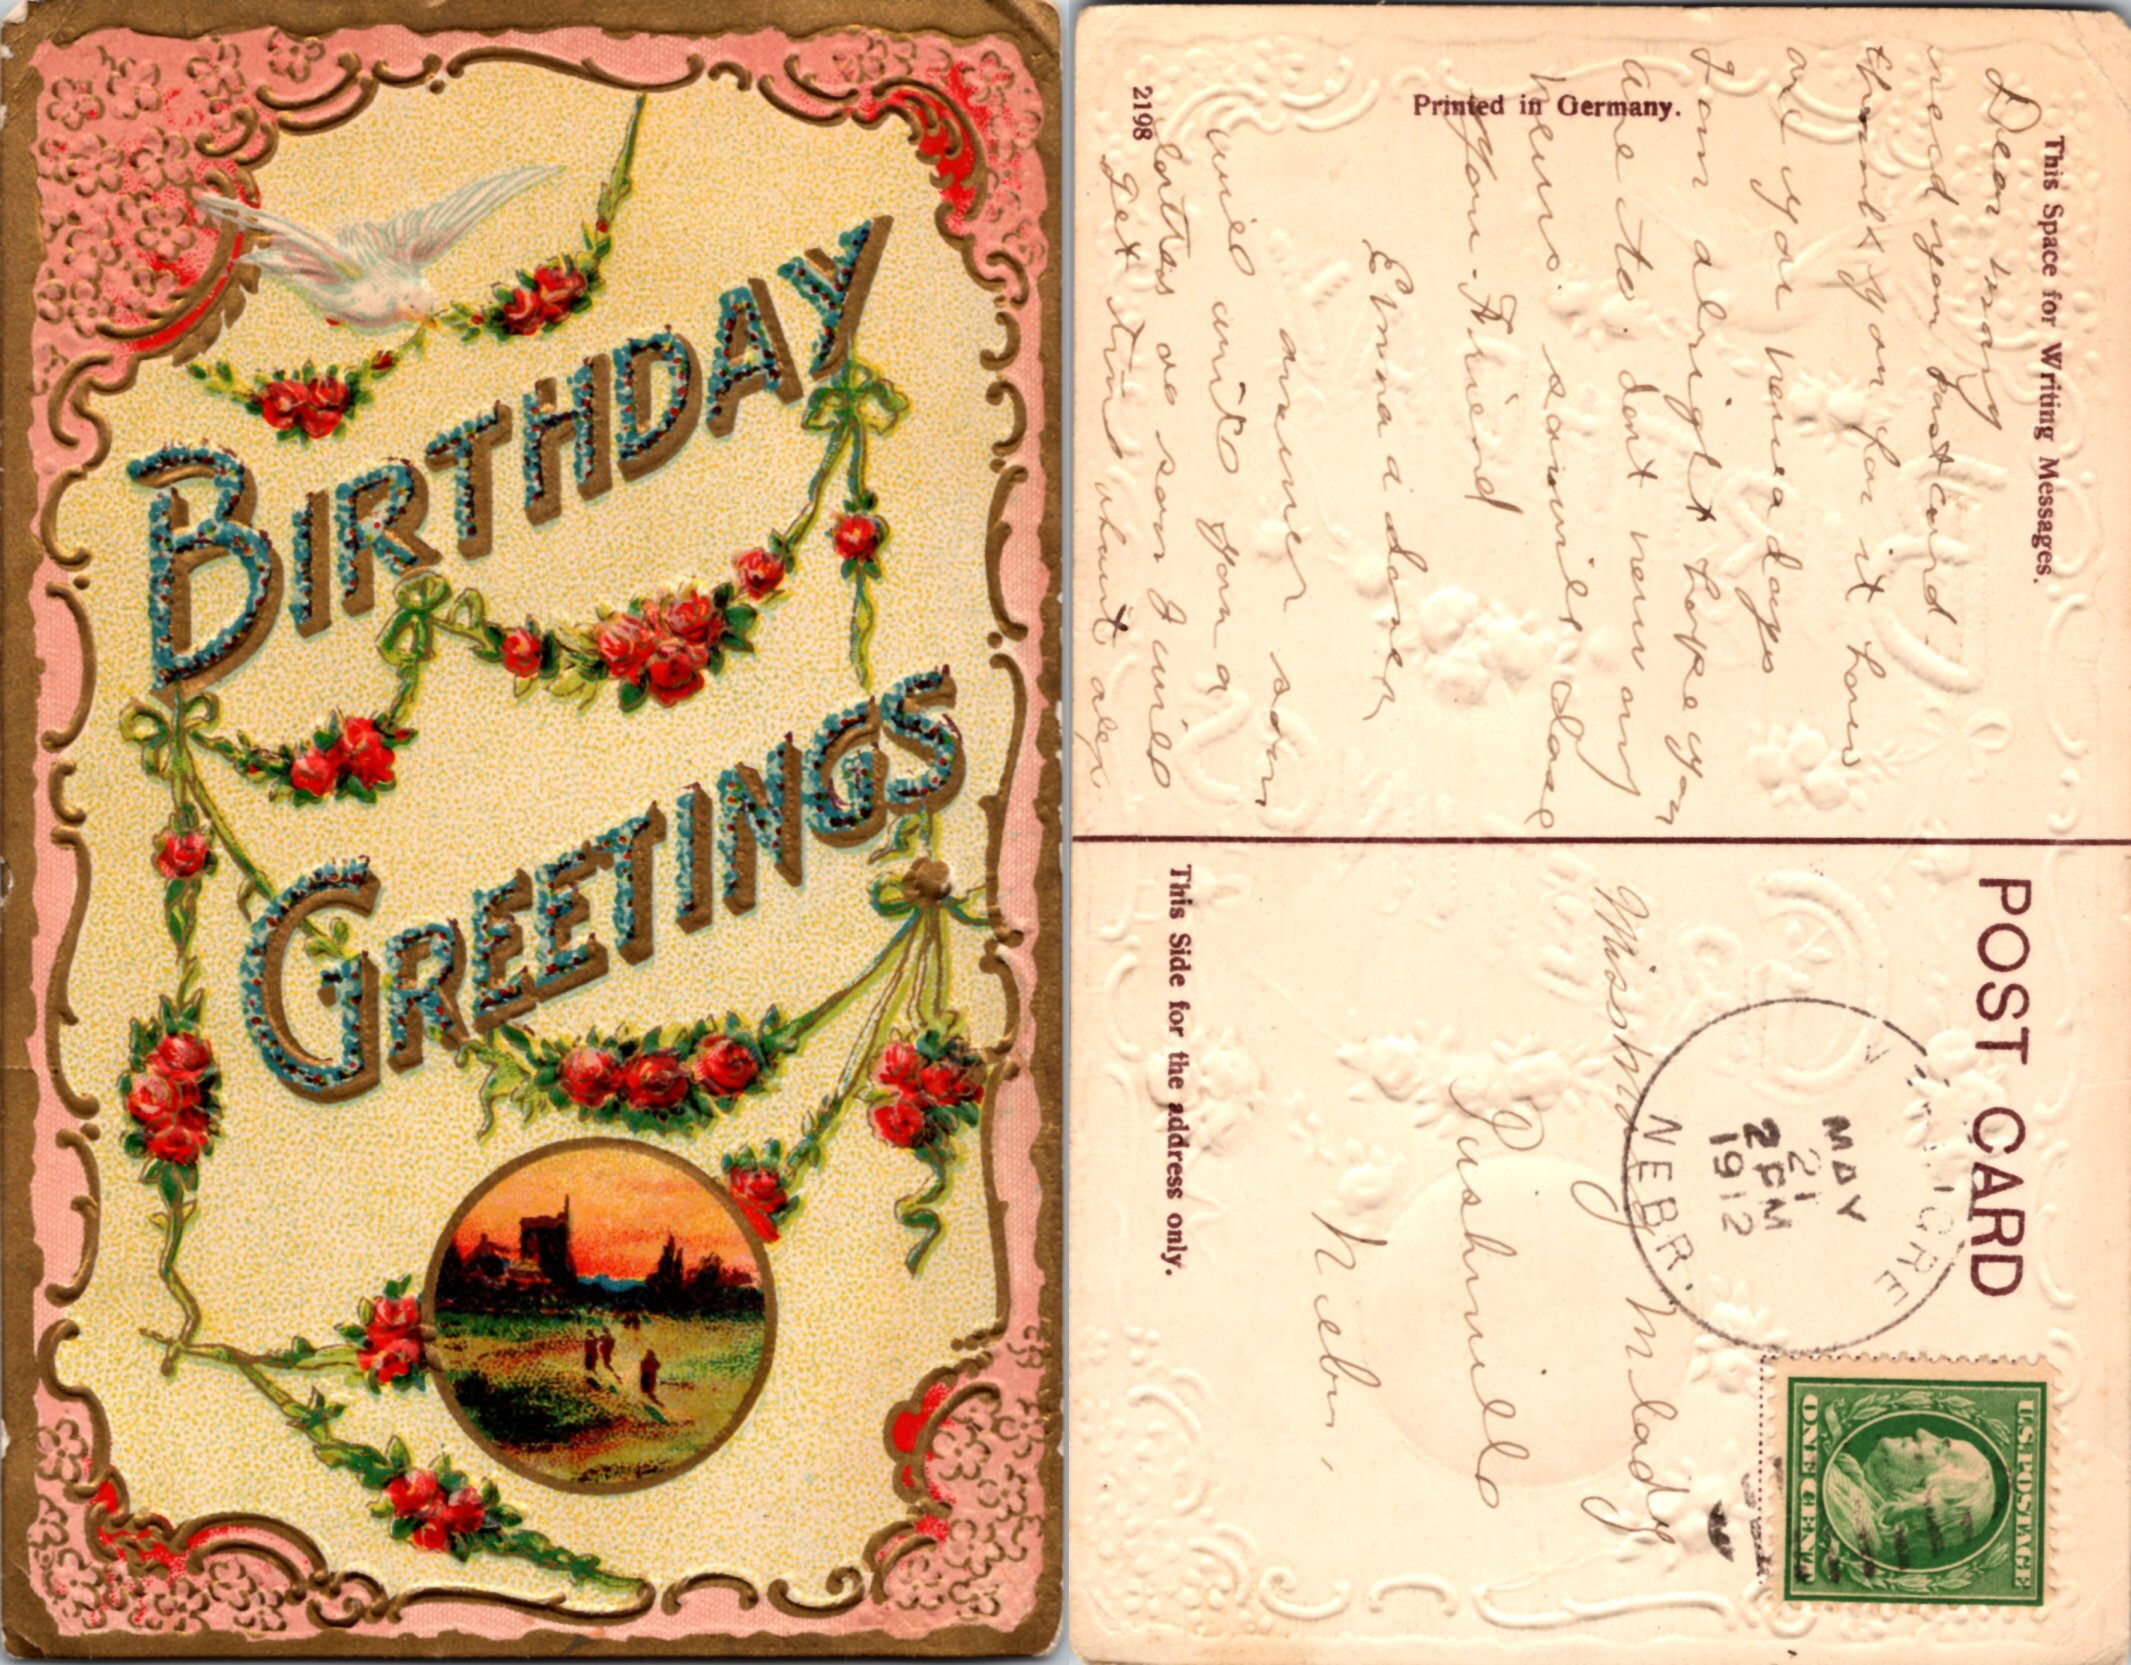 BIRTHDAY
GREETINGS
This Space for Writing Messages.
Dear
recd your post card.
thank you for it how
are you now a days
I am alright hope you
are to. dont new any
news. so will close
your Friend
Emma
answer soon
will write you a
as soon I will
Get
Printed in Germany.
2198
POST CARD
NEBR.
MAY
21
2 PM
1912
U.S. POSTAGE
ONE CENT
Miss
Nebr.
This Side for the address only.